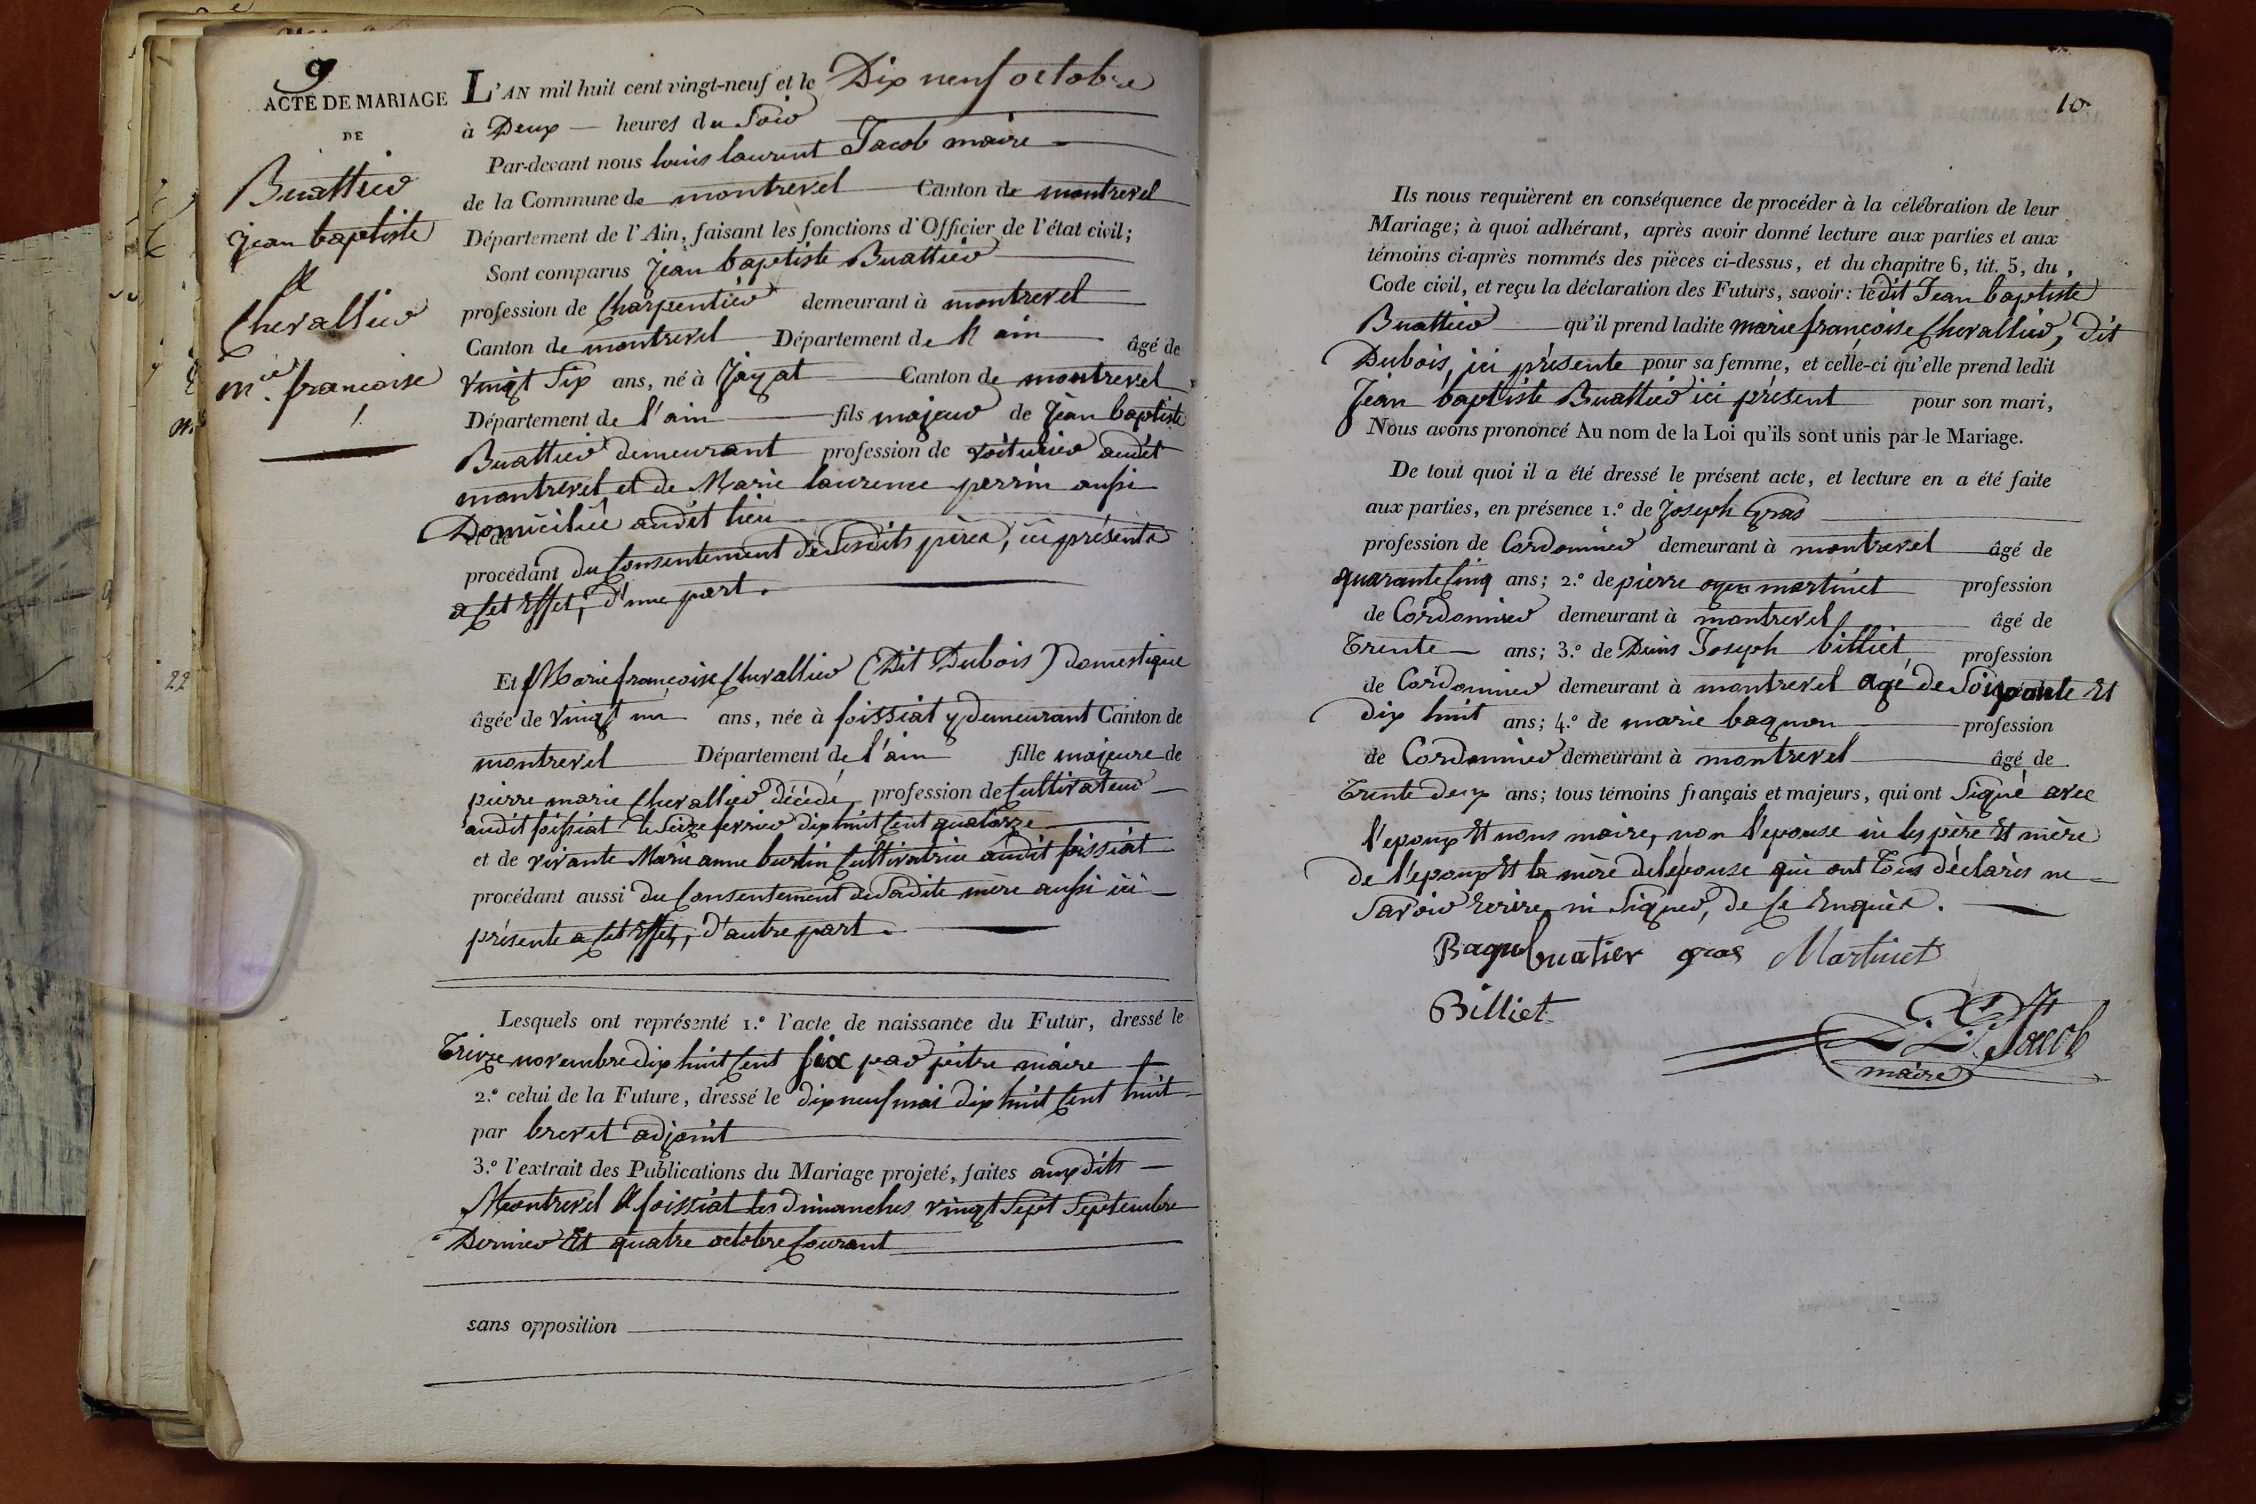 9
ACTE DE MARIAGE
DE
Buattier
jean baptiste
&
Chevallier
m.ie françoise
22
L'AN mil huit cent vingt-neuf et le Dix neuf octobre
à Deux heures du Soir
Par-devant nous louis laurent Jacob maire
de la Commune de montrevel Canton de montrevel
Département de l'Ain, faisant les fonctions d'Officier de l'état civil;
Sont comparus jean baptiste Buattier
profession de Charpentier demeurant à montrevel
Canton de montrevel Département de l'ain âgé de
vingt Six ans, né à Jayat Canton de montrevel
Département de l'ain fils majeur de jean baptiste
Buattier demeurant profession de voiturier audit
montrevel et de Marie laurence perrin aussi
Domiciliée audit lieu
et de
procédant du Consentement de Sesdits pères, ici présents
a Cet Effet, d'une part.
Et Marie françoise Chevallier (Dit Dubois) domestique
âgée de vingt un ans, née à foissiat y demeurant Canton de
montrevel Département de l'ain fille majeure de
pierre marie Chevallier décédé profession de Cultivateur
audit foissiat le Seize fevrier dix huit Cent quatorze
et de vivante Marie anne burtin Cultivatrice audit foissiat
procédant aussi du Consentement de Sadite mère aussi ici
présente a Cet Effet, d'autre part.
Lesquels ont représenté 1.º l'acte de naissance du Futur, dressé le
Treize novembre dix huit Cent Six par peitre maire
2.º celui de la Future, dressé le dix neuf mai dix huit Cent huit
par brevet adjoint
3.º l'extrait des Publications du Mariage projeté, faites auxdits
Montrevel & foissiat les dimanches vingt Sept Septembre
Dernier Et quatre octobre Courant
sans opposition
10
Ils nous requièrent en conséquence de procéder à la célébration de leur
Mariage; à quoi adhérant, après avoir donné lecture aux parties et aux
témoins ci-après nommés des pièces ci-dessus, et du chapitre 6, tit. 5, du
Code civil, et reçu la déclaration des Futurs, savoir: le dit Jean baptiste
Buattier qu'il prend ladite marie françoise Chevallier, dit
Dubois, ici présente pour sa femme, et celle-ci qu'elle prend ledit
Jean baptiste Buattier ici présent pour son mari,
Nous avons prononcé Au nom de la Loi qu'ils sont unis par le Mariage.
De tout quoi il a été dressé le présent acte, et lecture en a été faite
aux parties, en présence 1.º de Joseph Gras
profession de Cordonnier demeurant à montrevel âgé de
quarante Cinq ans; 2.º de pierre martinet profession
de Cordonnier demeurant à montrevel âgé de
Trente ans; 3.º de Denis Joseph billiet profession
de Cordonnier demeurant à montrevel agé de Soixante Et
dix huit ans; 4.º de marie baqnon profession
de Cordonnier demeurant à montrevel âgé de
Trente deux ans; tous témoins français et majeurs, qui ont Signé avec
l'epoux Et nous maire, non l'epouse ni les père Et mère
de l'epoux Et la mère de lépouse qui ont Tous déclarés ne
Savoir Ecrire ni Signer, de Ce Enquis.
Buatier gras Martinet
Billiet
L. L. Jacob
maire